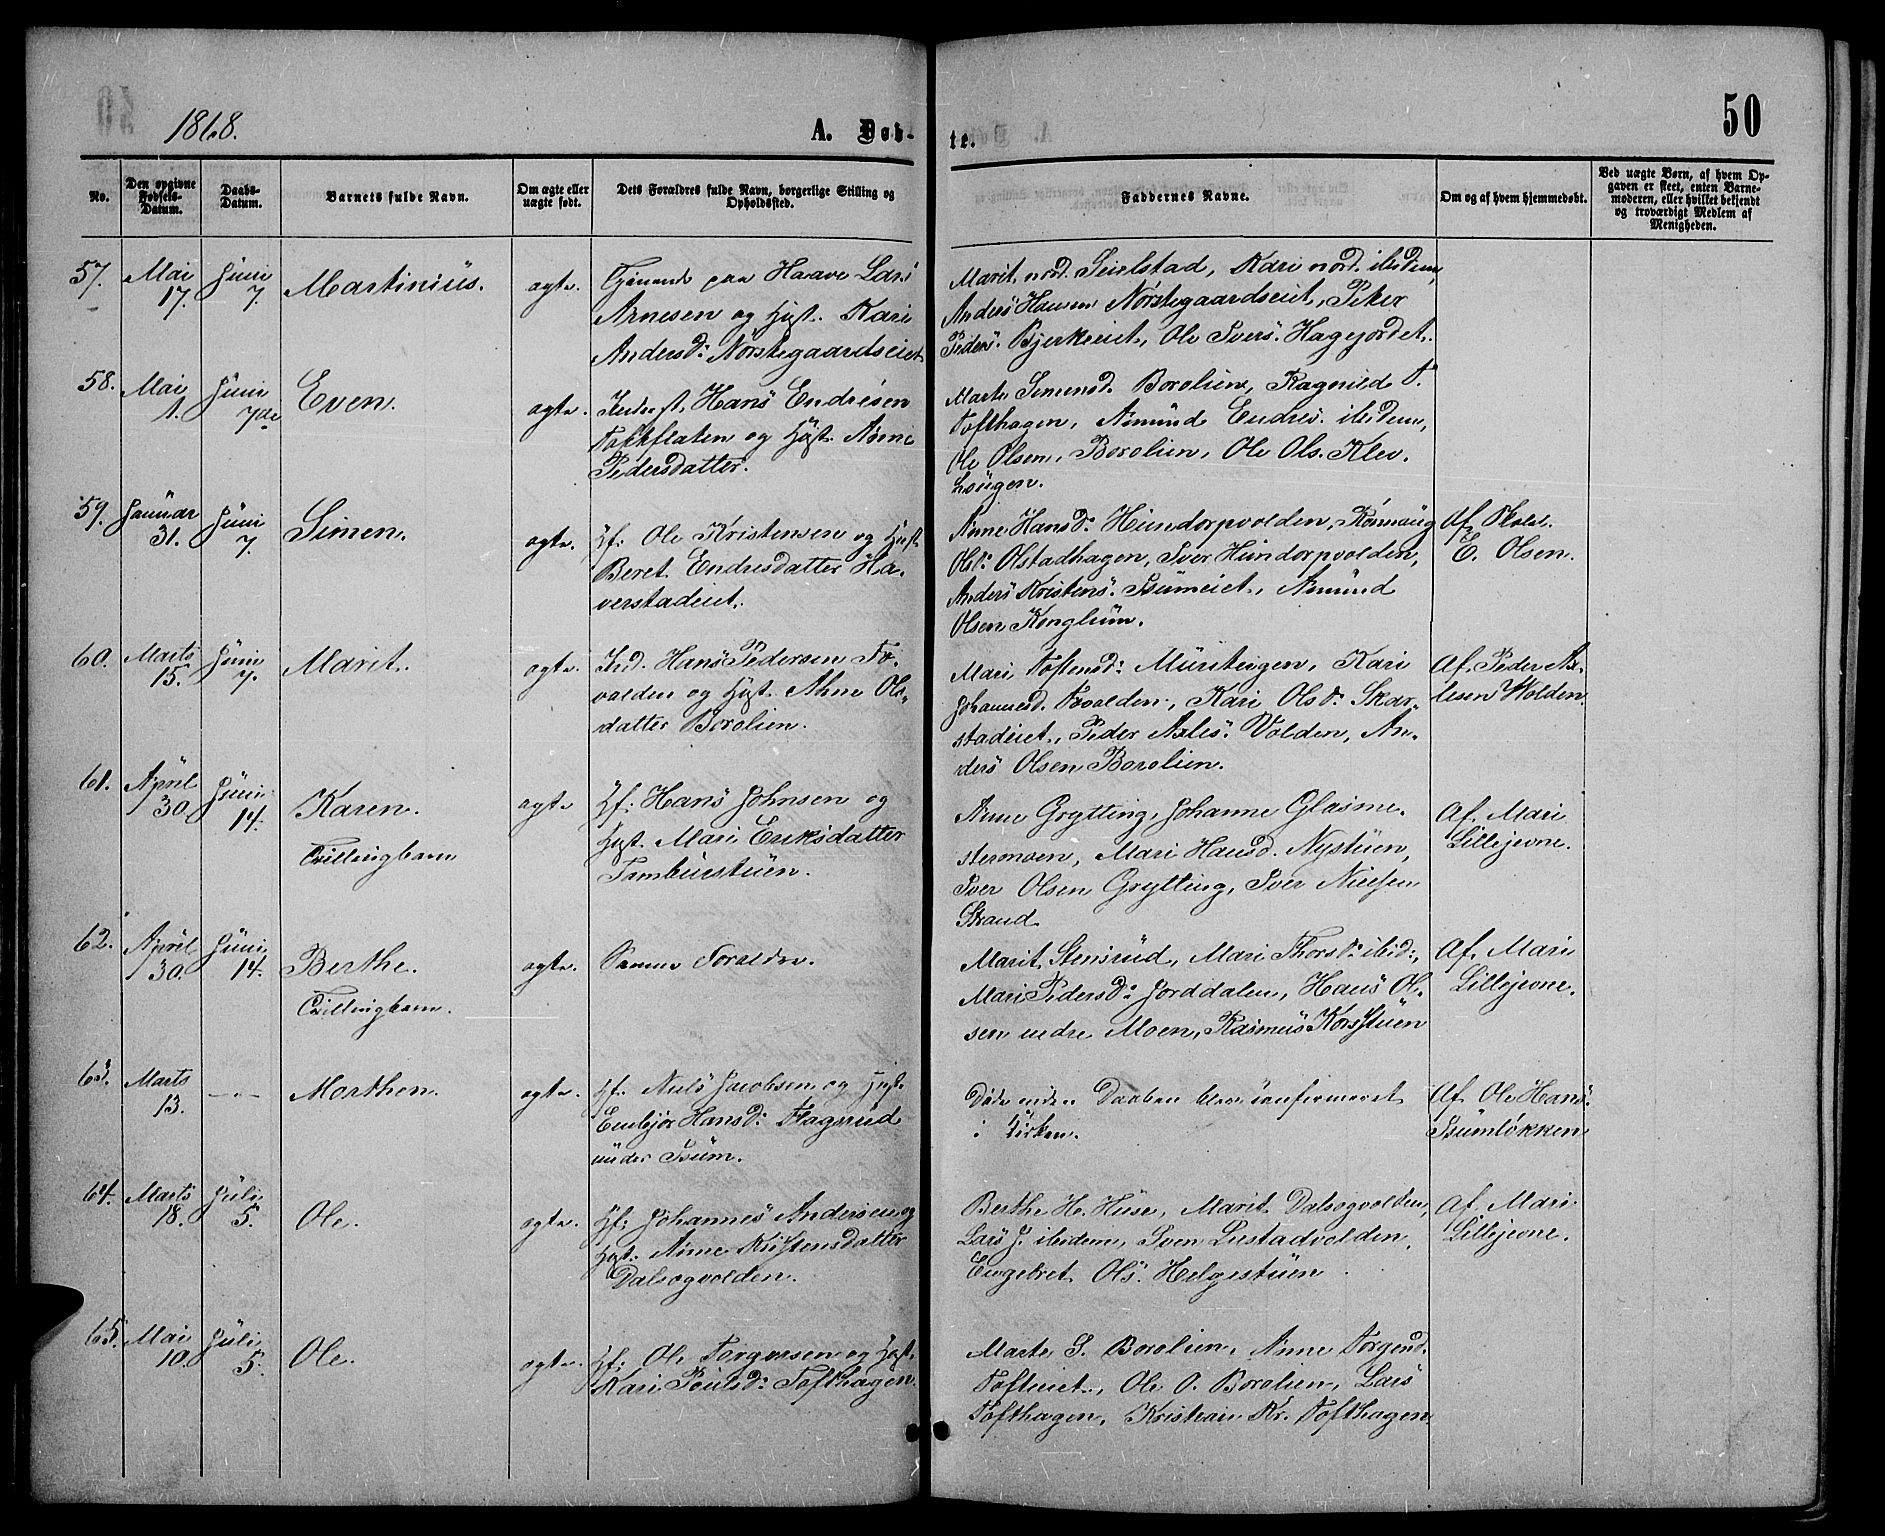 1868.
A. Døb-
te.
50
No.
Den opgivne Fødsels-Datum.
Daabs-Datum.
Barnets fulde Navn.
Om ægte eller uægte født.
Dets Forældres fulde Navn, borgerlige Stilling og Opholdssted.
Faddernes Navne.
Om og af hvem hjemmedøbt.
Ved uægte Børn, af hvem Opgaven er skeet, enten Barnemoderen, eller hvilket bekjendt og troværdigt Medlem af Menigheden.
57. Mai 17. Juni 7. Martinius. ægte.
Tjenende paa Haave Lars
Arnesen og Hust. Kari
Andersd: Nørstegaardseiet
Marit nord. Seielstad, Kari nord. ibidem,
Anders Hansen Nørstegaardseiet, Peter
Peders. Bjerkeeiet, Ole Ivers. Hagejordet.
58. Mai 1. Juni 7de Even. ægte.
Inderst, Hans Endresen
og Hust. Anne
Pedersdatter.
Marte Simensd. Borolien, Ragnild T.
Tofthagen, Amund Endres. ibidem,
Ole Olsen, Borolien, Ole Ols. Klev.
haugen.
59. Januar 31. Juni 7. Simen. ægte.
Hf: Ole Kristensen og Hust.
Beret Endresdatter Ha-
verstadeiet.
Anne Hansd: Hundorpvolden, Rønnaug
Olsd: Olstadhagen, Iver Hundorpvolden,
Anders Kristens. Isumeiet, Amund
Olsen Konglum.
Af Skolel.
E. Olsen.
60. Marts 15. Juni 7. Marit. ægte.
Ind. Hans Pedersen Fo-
volden og Hust. Anne Ols-
datter Borolien.
Mari Toftensd: Muriteigen, Kari
Johannesd. Fovolden, Kari Olsd: Skar-
stadeiet, Peder Axels. Volden, An-
ders Olsen Borolien.
Af Peder Ax-
elsen Wolden
61. April 30. Juni 14. Karen. ægte
Tvillingbarn
Hf: Hans Johnsen og
Hust. Mari Eriksdatter
Tambuestuen.
Anne Grytting, Johanne Glasme-
stermoen, Mari Hansd. Nystuen,
Iver Olsen Grytting, Iver Nielsen
Strand
Af Mari
Lillejevne.
62. April 30. Juni 14. Berthe. ægte.
Tvillingbarn.
Samme Forældre.
Marit Stensrud, Mari Thorsd: ibid:,
Mari Pedersd: Jorddalen, Hans Ol-
sen nedre Moen, Rasmus Korsstuen
Af Mari
Lillejevne.
63. Marts 13. - " - Morthen. ægte.
Hf: Niels Jacobsen og Hust.
Embjør Hansd: Flagsrud
under Isum.
Døde inden Daaben blev confirmeret
i Kirken.
Af Ole Hans.
Isumløkken
64. Marts 18. Juli 5. Ole. ægte.
Hf: Johannes Andersen og
Hust. Anne Kristensdatter
Dalsegvolden.
Berthe H. Huse, Marit Dalsegvolden,
Lars J. ibidem, Sven Listadvolden,
Engebret Ols. Helgestuen.
Af Mari
Lillejevne.
65. Mai 10. Juli 5. Ole. ægte.
Hf: Ole Torgersen og Hust.
Kari Poulsd: Tofthagen.
Marte S. Borolien, Anne Torgersd.
Tofteeiet, Ole O. Borolien, Lars
Tofthagen, Kristian Kr. Tofthagen